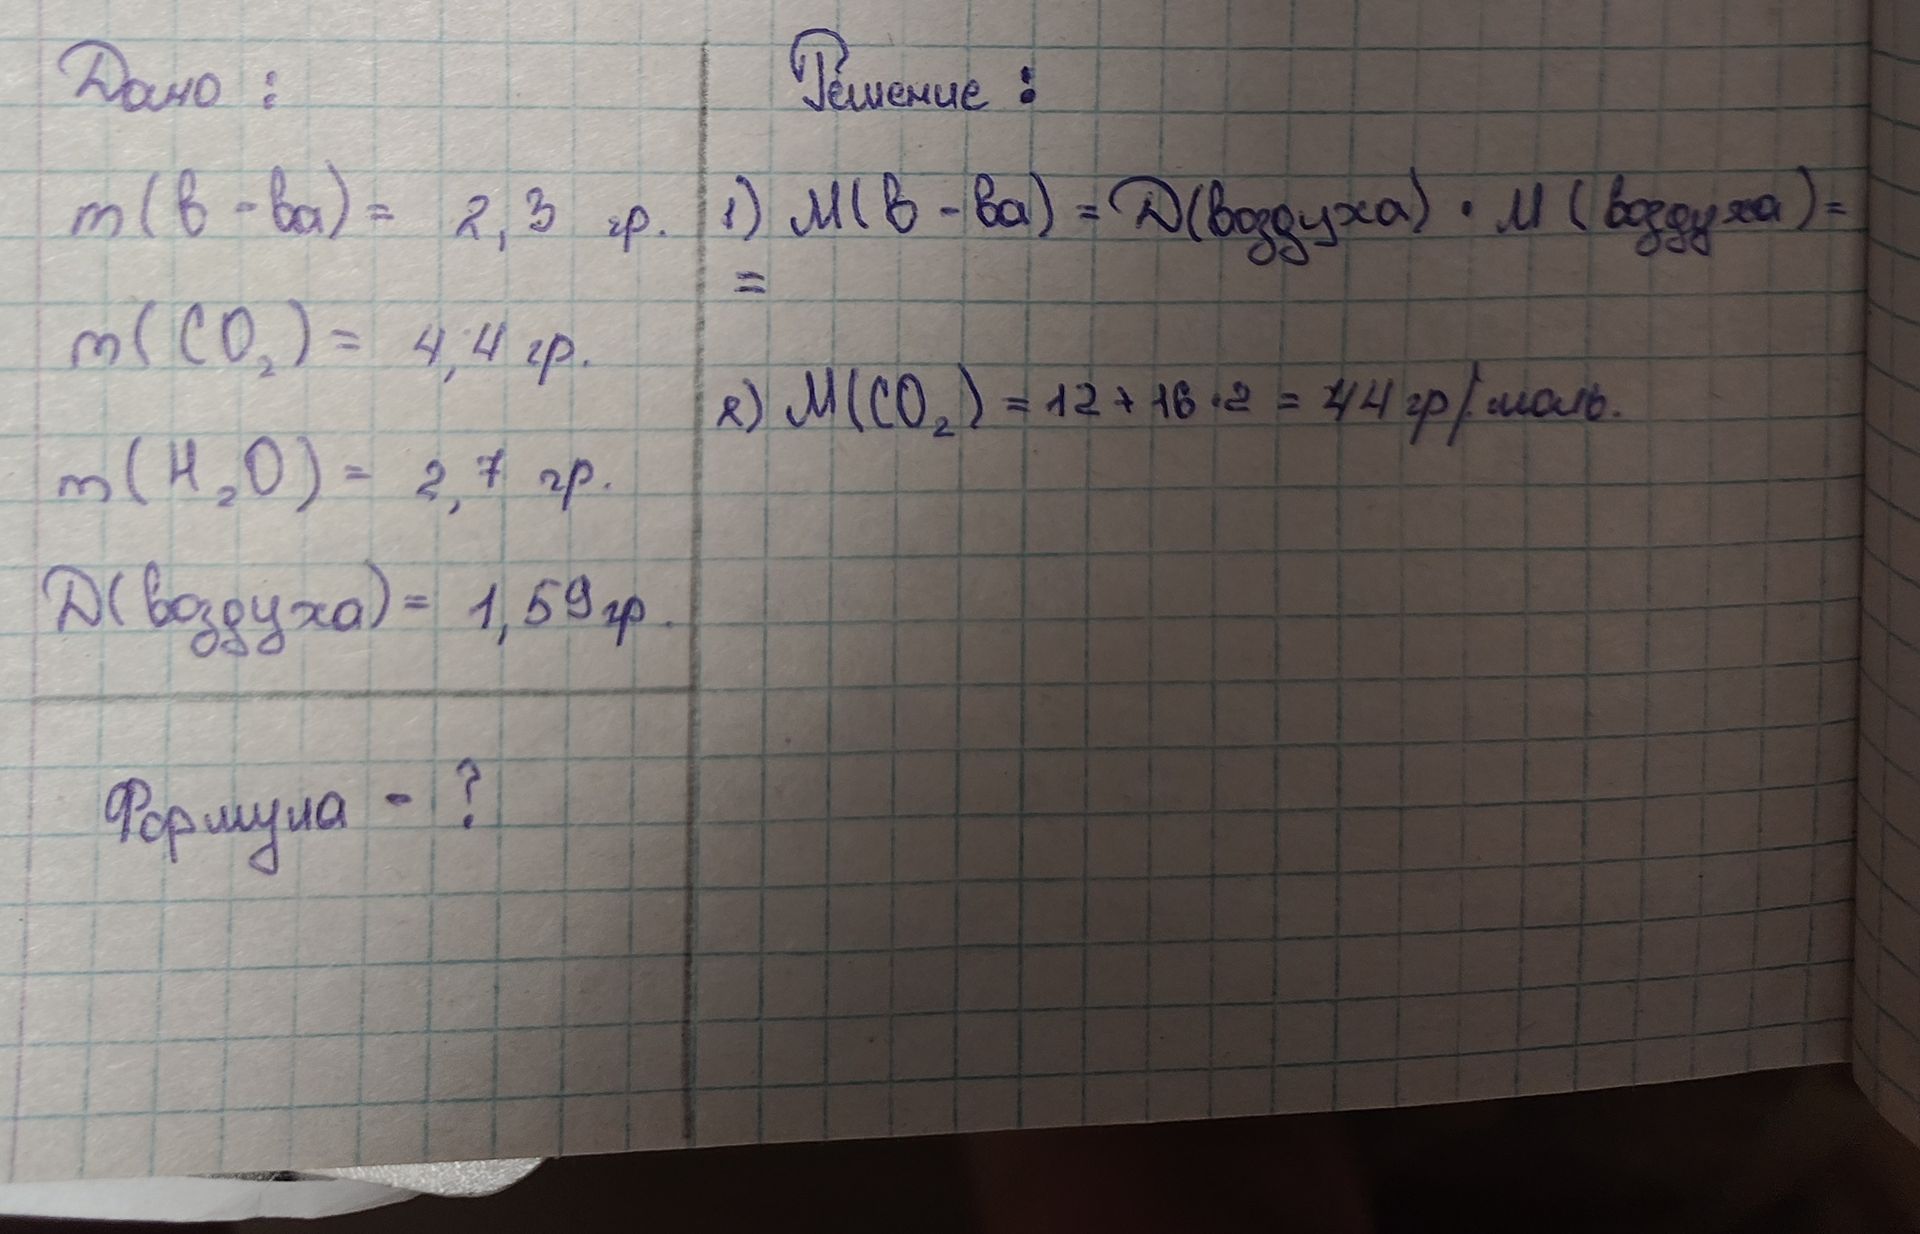 Дано :
m(в-ва) = 2,3 гр.
m(CO₂) = 4,4 гр.
m(H₂O) = 2,7 гр.
D(воздуха) = 1,59 гр.
Формула - ?
Решение :
1) M(в-ва) = D(воздуха) · M(воздуха) =
=
2) M(CO₂) = 12 + 16 · 2 = 44 гр/моль.